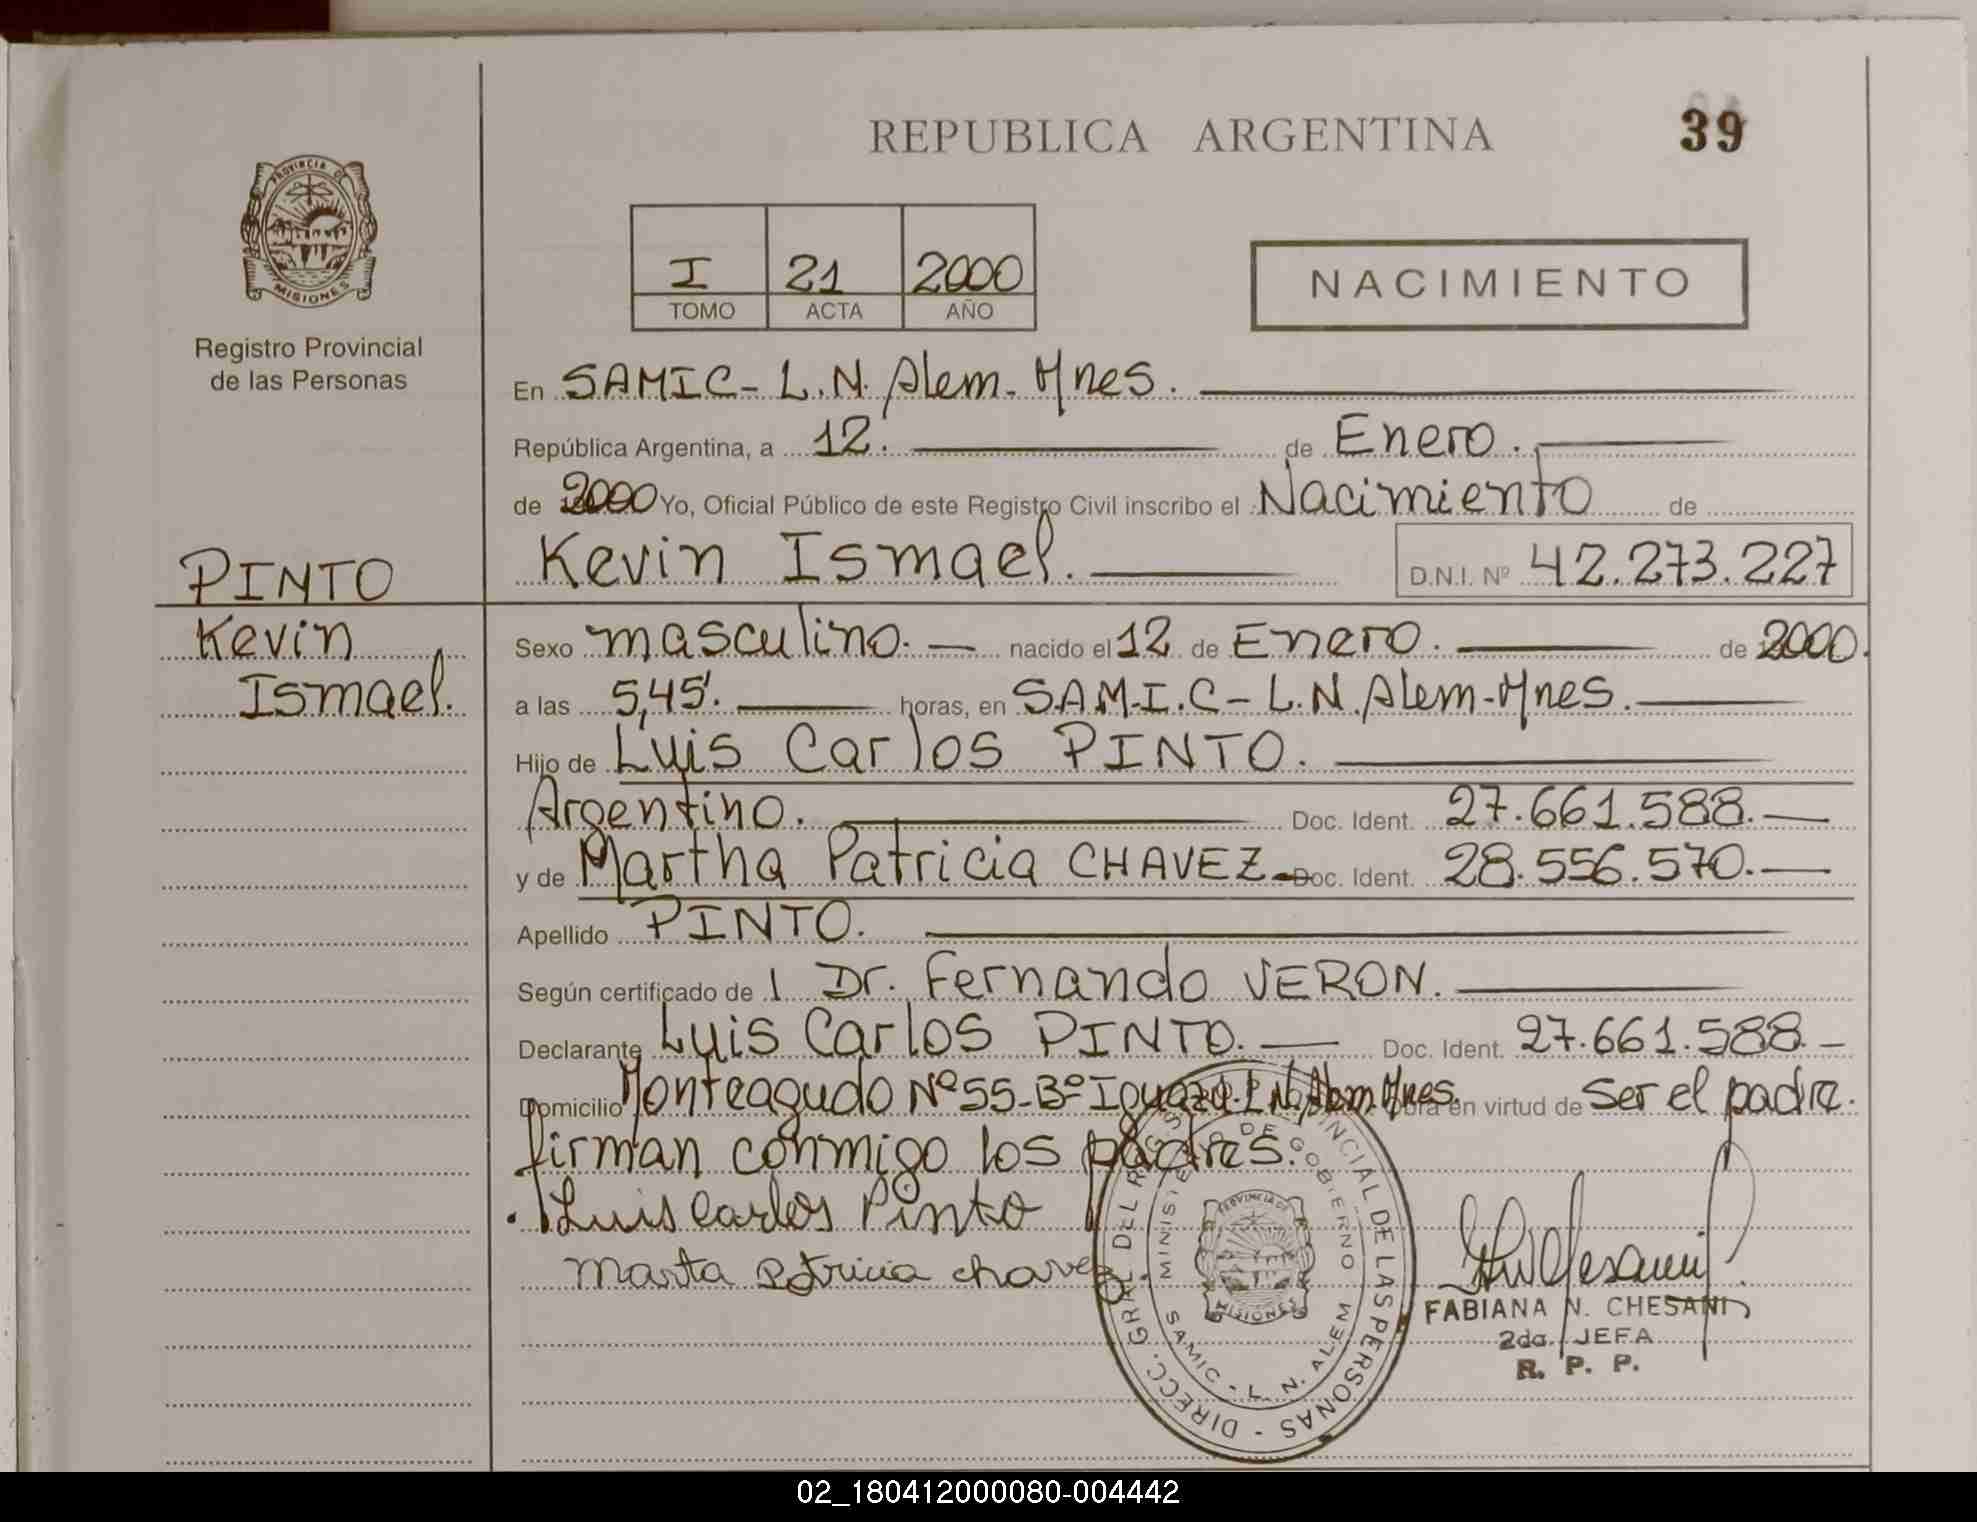 REPUBLICA ARGENTINA
39
PROVINCIA DE
MISIONES
Registro Provincial
de las Personas
I 21 2000
TOMO ACTA AÑO
NACIMIENTO
En SAMIC- L.N. Alem- Mnes.
República Argentina, a 12. de Enero.
de 2000 Yo, Oficial Público de este Registro Civil inscribo el Nacimiento de
PINTO
Kevin Ismael. D.N.I. Nº 42.273.227
Kevin
Ismael.
Sexo masculino. nacido el 12 de Enero. de 2000.
a las 5,45'. horas, en S.A.M.I.C- L.N. Alem-Mnes.
Hijo de Luis Carlos PINTO.
Argentino. Doc. Ident. 27.661.588.
y de Martha Patricia CHAVEZ Doc. Ident. 28.556.570.
Apellido PINTO.
Según certificado de Dr. Fernando VERON.
Declarante Luis Carlos PINTO. Doc. Ident. 27.661.588.
Domicilio Monteagudo Nº 55-Bº Iguazú-L.N. Alem. Mnes. obra en virtud de ser el padre.
firman conmigo los padres.
Luis Carlos Pinto
Marta Patricia chavez
DIRECC. GRAL DEL REG. PROVINCIAL DE LAS PERSONAS
MINISTERIO DE GOBIERNO
PROVINCIA DE
MISIONES
SAMIC - L. N. ALEM
FABIANA N. CHESANI
2da. JEFA
R. P. P.
02_180412000080-004442